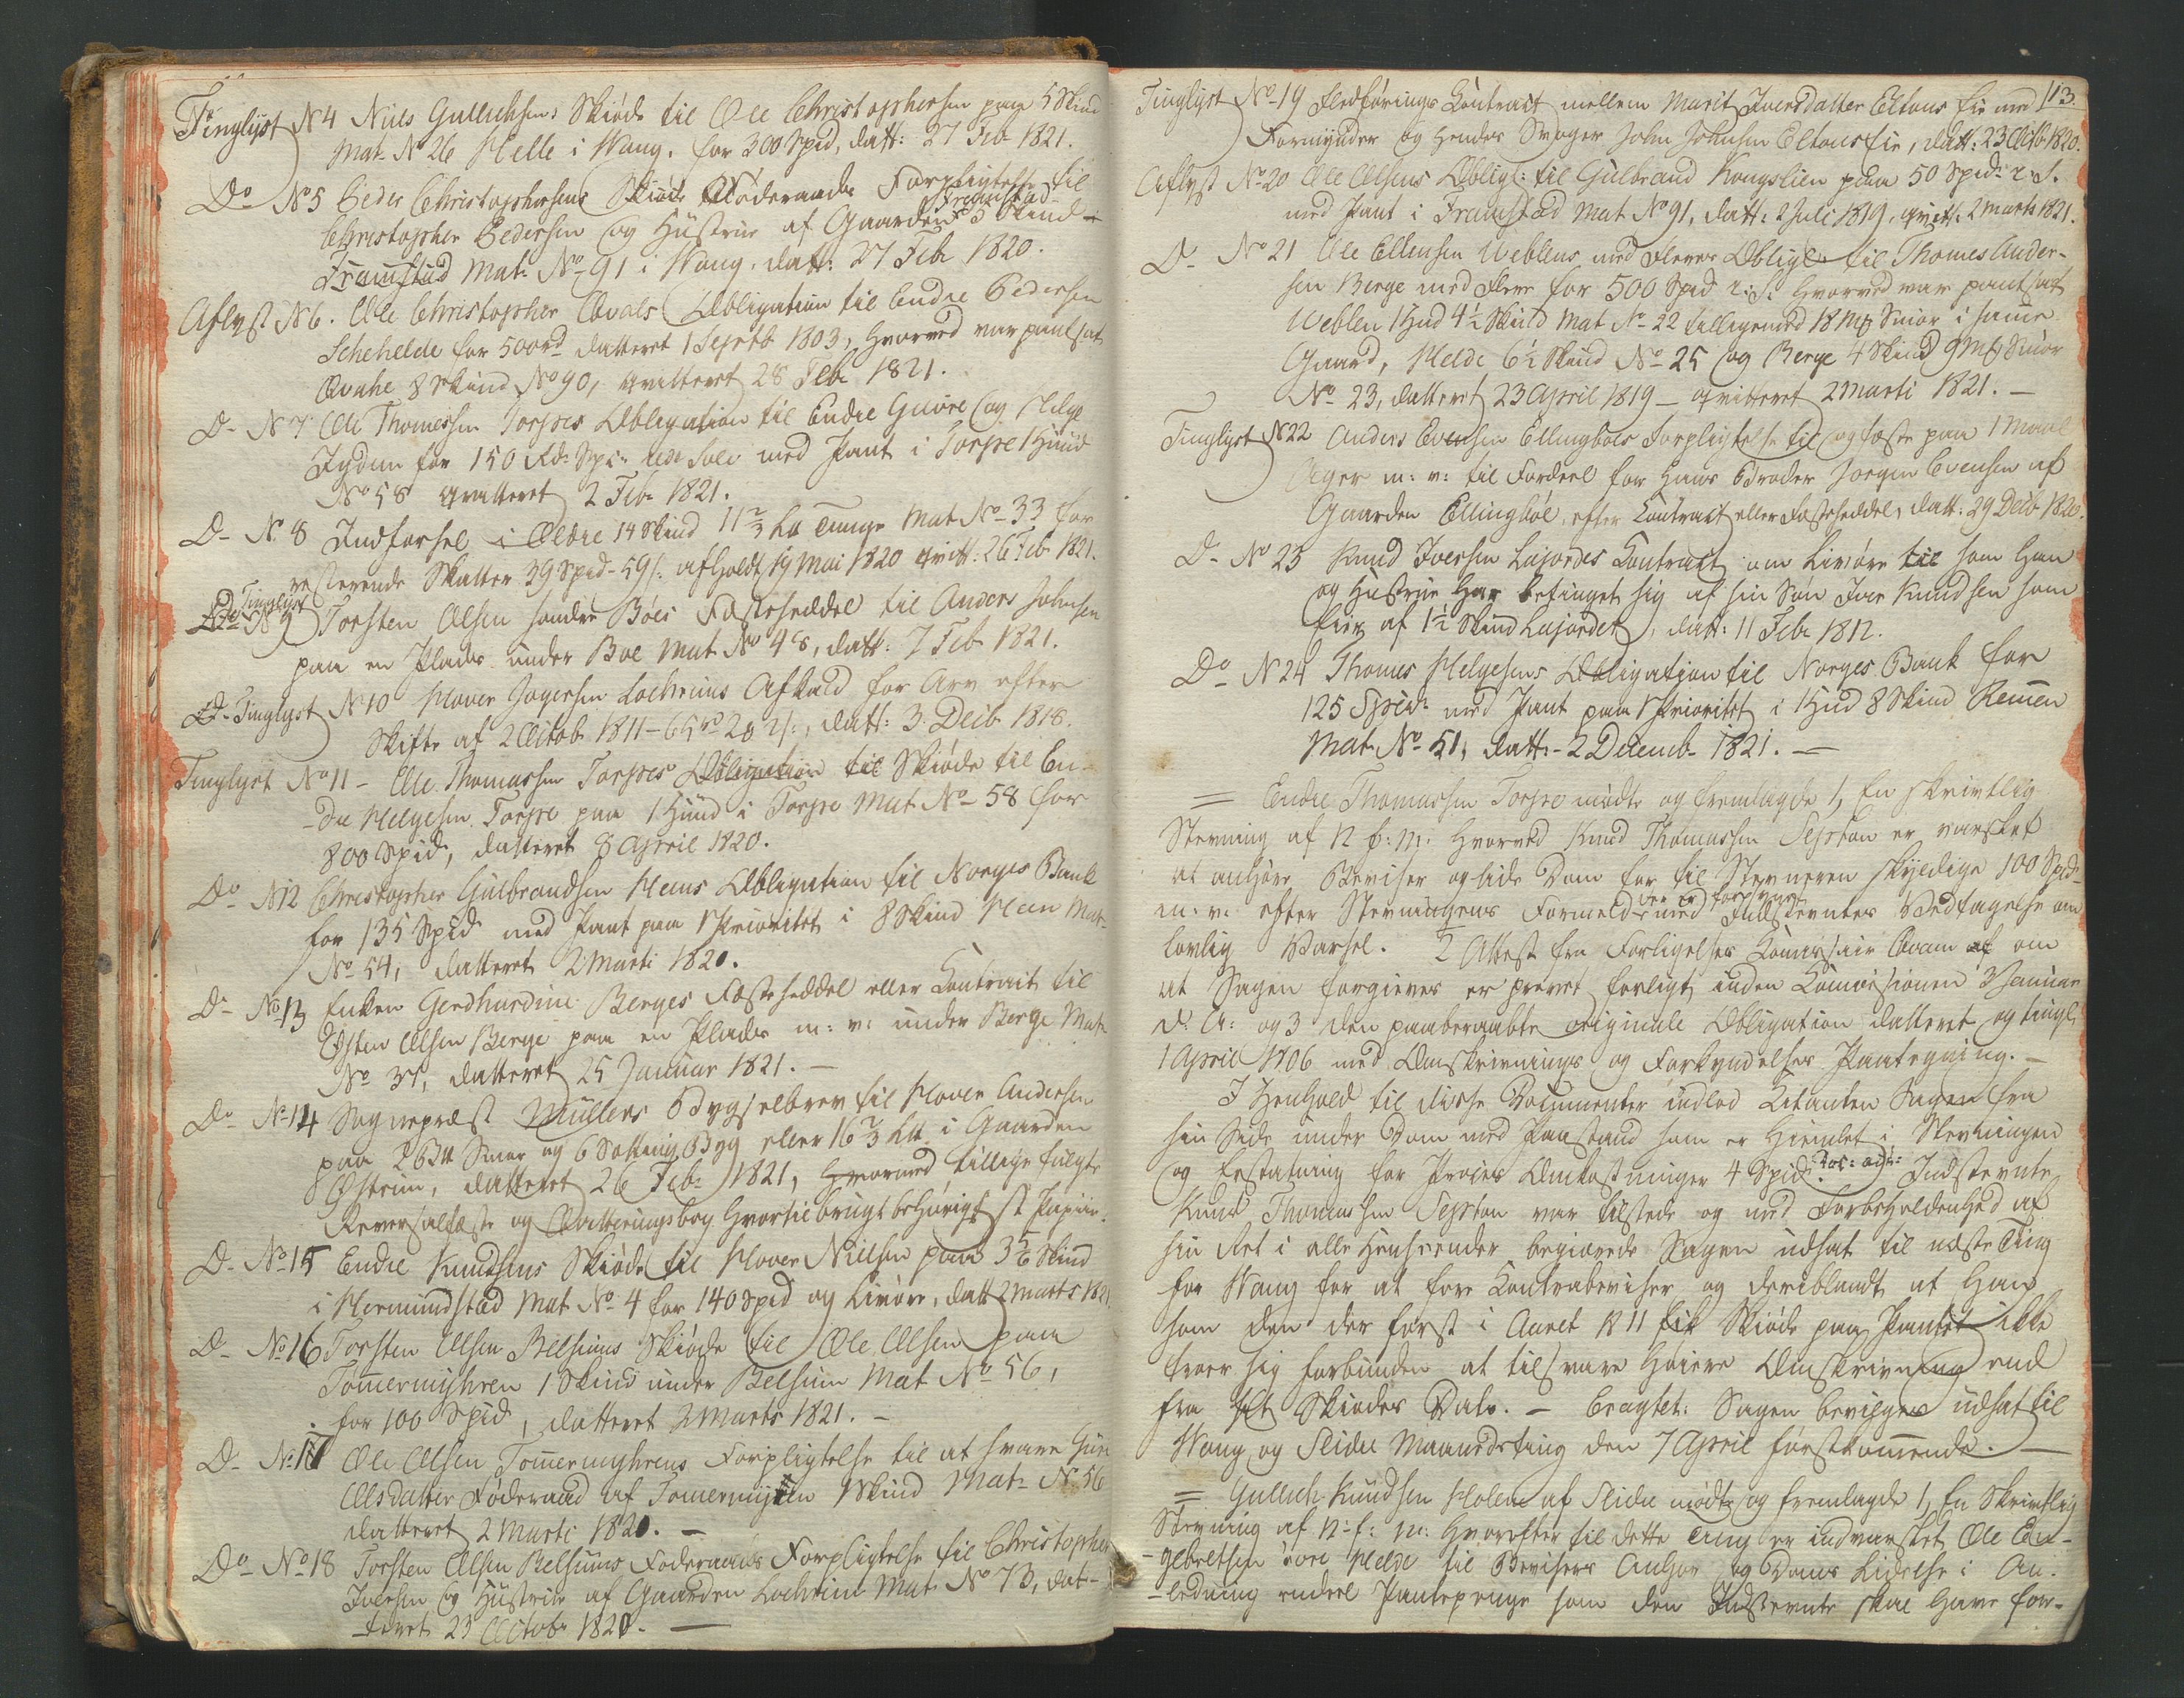 Tinglyst N 4 Niels Gullichsens Skiøde til Ole Christophersen paa 5 Skind
Mat. N 26 Helle i Wang. for 300 Spd, datt: 27 Feb. 1821.
Do No 5 Peder Christophersens Føderaads Forpligtelse til
Christopher Pedersen og Hustrue af Gaarden 5 Skind
Framstad Mat: No 91 i Wang. datt: 27 Feb. 1820.
Aflyst N 6. Ole Christopher Qvales Obligation til Endre Pedersen
Schehelde for 500 rd datteret 1 Septb 1803, hvorved var pantsat
Qvahle 8 Skind No 90, qvitteret 28 Feb. 1821.
D- N 7 Ole Thomessen Torpes Obligation til Endre Gaure og Helge
for 150 Rd. Spc. rede Sølv med Pant i Torpe 1 Huud
No 58 qvitteret 2 Feb. 1821.
D- N. 8 Indførsel i Øldre 14 Skind 11 2/3 Lb Tunge Mat No 33 for
resterende Skatter 39 Spd - 59 s. afholdt 19 Mai 1820 qvitt: 26 Feb. 1821.
Tinglyst
N 9 Torsten Olsen søndre Bøes Fæsteseddel til Anders Johnsen
paa en Plads under Bøe Mat No 48, datt: 7 Feb 1821.
D. Tinglyst N 10 Hover Jogersen Lochreims Afkald for Arv efter
Skifte af 2 Octob. 1811 - 65 rd 20 s:, datt: 3 Decb 1818.
Tinglyst No 11 - Ole Thomassen Torpes Obligation til Skiøde til En-
-dre Helgesen Torpe paa 1 Huud i Torpe Mat No 58 for
800 Spd, datteret 8 April 1820.
Do N 12 Christopher Gulbrandsen Heens Obligation til Norges Bank
for 135 Spd med Pant paa 1 Prioritet i 8 Skind Heen Mat
No 54, datteret 2 Marti 1820.
D- No 13 Enken Gerdhardine Berges Fæsteseddel eller Contract til
Østen Olsen Berge paa en Plads m: v: under Berge Mat
No 37, datteret 25 Januar 1821. -
Do No 14 Sognepræst Müllers Bygselbrev til Hover Andersen
paa 2 Smør og 6 Sætting Byg eller 16 2/3 Lb i Gaarden
Østrem, datteret 26 Feb. 1821, hvormed tillige fulgte
Reversalfæste og Qvitteringsbog hvortil brugt behørigt st Papiir.
D- No 15 Endre Knudsens Skiøde til Hover Nielsen paa 3 5/6 Skind
i Hermundstad Mat No 4 for 140 Spd og Livøre, datt 2 Marts 1821.
D- No 16 Torsten Olsen Belsiums Skiøde til Ole Olsen paa
Tommermyhren 1 Skind under Belsium Mat No 56,
for 100 Spd, datteret 2 Marts 1821. -
D- No 17 Ole Olsen Tommermyhrens Forpligtelse til at svare Guri
Olsdatter Føderaad af Tomermyren 1 Skind Mat: No 56
datteret 2 Marti 1821. -
Do No 18 Torsten Olsen Belsiums Føderaads Forpligtelse til Christopher
Iversen og Hustrue af Gaarden Lochreim Mat No 73, dat-
-teret 23 Octobr 1820. -
Tinglyst No 19 Fledførings Contract mellem Marit Iversdatter Eltons Eie med 113.
Formynder og hendes Svoger John Johnsen Eltons Eie, datt: 23 Octb 1820.
Aflyst No 20 Ole Olsens Obligt: til Gulbrand Kongslien paa 50 Spd: r. S.
med Pant i Framstad Mat No 91, datt: 2 Juli 1819, qvitt: 2 Marts 1821.
D- No 21 Ole Ellensen Weblens med Fleres Obligt til Thomes Ander-
sen Berge med Flere for 500 Spd r: S: hvorved var pantsat
Weblen 1 Hud 4 1/2 Skind Mat No 22 tilligemed 18 Mk Smør i samme
Gaard, Helde 6 1/2 Skind No 25 og Berge 4 Skind 9 Mk Smør
No 23, datteret 23 April 1819 - qvitteret 2 Marti 1821. -
Tinglyst N 22 Anders Evensen Ellingbøes Forpligtelse til og fæste paa 1 Maal
Ager m: v: til Fordeel for hans Broder Jørgen Evensen af
Gaarden Ellingbøe, efter Contract eller Fæsteseddel, datt: 29 Decb 1820.
D- No 23 Knud Iversen Lajordes Contract om Livøre til som han
og Hustrue har betinget sig af sin Søn Iver Knudsen som
Eier af 1 1/2 Skind Lajordet, datt: 11 Feb. 1812.
Do N 24 Thomes Helgesens Obligation til Norges Bank for
125 Spcd: med Pant paa 1 Prioritet i 1 Hud 8 Skind Remmen
Mat. No 51, datt: - 2 Decemb. 1821. -
= Endre Thomassen Torpe mødte og fremlagde 1, En skrivtlig
Stevning af N f: M: hvorved Knud Thomassen Sepstøn er varslet
at anhøre Beviser og lide Dom for til Stevneren skyldige 100 Spd-
m: v: efter Stevningens Formeld - med Indstevntes Vedtagelse om
lovlig Varsel. 2 Attest fra Forligelses Commissair om
at Sagen forgieves er prøvet forligt inden Commissionen 3 Januar
d. A: og 3 den paaberaabte originale Obligation datteret og tingl.
1 April 1806 med Omskrivnings og Forkyndelses Paategning. -
I Henhold til disse Documenter indlod Citanten Sagen fra
sin Side under Dom med Paastand som er Hiemlet i Stevningen
og Erstatning for Proces Omkostninger 4 Spd. Indstevnte
Knud Thomassen Sepstøn var tilstede og med Forbeholdenhed af
sin Ret i alle Henseender begiærede Sagen udsat til næste Ting
for Wang for at føre Contrabeviser og deriblandt at han
som den der først i Aaret 1811 fik Skiøde paa Pantet ikke
troer sig forbunden at tilsvare Høiere Omskrivning end
fra sit Skiødes Dato. - Eragtet: Sagen bevilges udsat til
Wang og Slidre Maanedsting den 7 April førstkommende. -
= Gullich Knudsen Holene af Slidre mødte og fremlagde 1, En Skrivtlig
Stevning af N: f: M: hvorefter til dette Ting er indvarslet Ole En-
-gebretsen Helde til Bevisers Anhør og Doms Lidelse i An-
-ledning endeel Pantepenge som den Indstevnte skal have for-